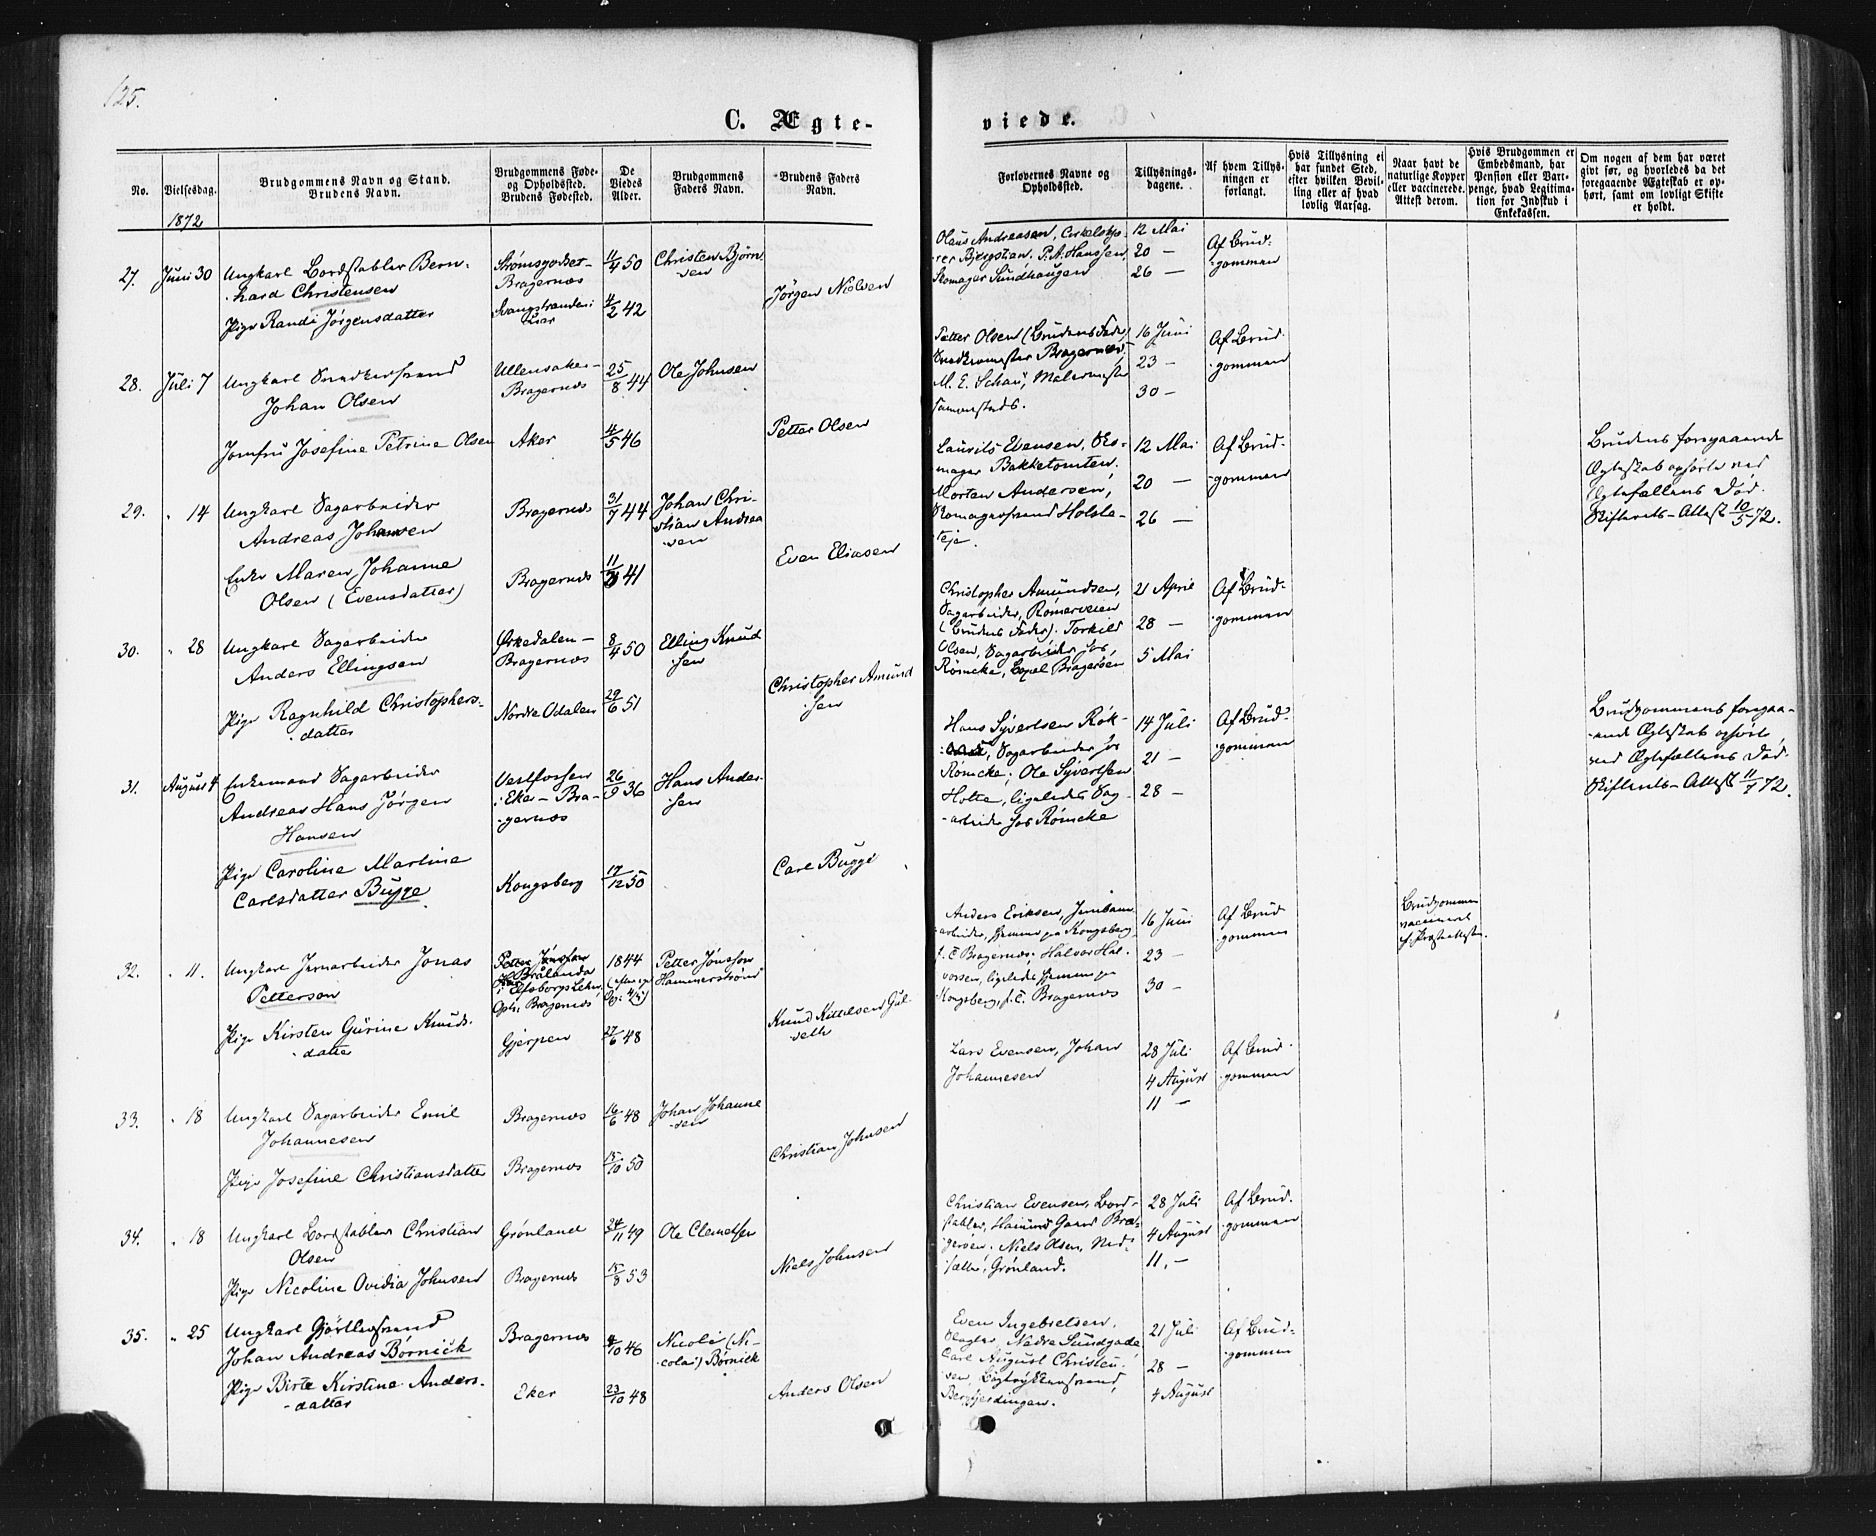 125.
C. Ægte-
No.
Vielsesdag.
Brudgommens Navn og Stand.
Brudens Navn.
Brudgommens Føde-
og Opholdssted.
Brudens Fødested.
De
Viedes
Alder.
Brudgommens
Faders Navn.
Brudens Faders
Navn.
1872
27. Juni 30 Ungkarl Bordstabler Bern-
hard Christensen
Strømsgodset-
Bragernæs
11/4 50
Christen Bjørn-
sen
Pige Randi Jørgensdatter
Svangstranden i
Lier
4/2 42
Jørgen Nielsen
28. Juli 7 Ungkarl Snedkersvend
Johan Olsen
Ullensaker-
Bragernæs
25/8 44
Ole Johnsen
Jomfru Josefine Petrine Olsen
Aker
4/5 46
Petter Olsen
29. " 14 Ungkarl Sagarbeider
Andreas Johansen
Bragernæs
31/7 44
Johan Chri-
stian Andrea-
sen
Enke Maren Johanne
Olsen (Evensdatter)
Bragernæs
41
Even Eliasen
30. " 28 Ungkarl Sagarbeider
Anders Ellingsen
Ørkedalen-
Bragernæs
8/4 50
Elling Knud-
sen
Pige Ragnhild Christophers-
datter
Nordre Odalen
29/6 51
Christopher Amund-
sen
31. August 4 Enkemand Sagarbeider
Andreas Hans Jørgen
Hansen
Vestfossen
i Eker-Bra-
gernæs
26/9 36
Hans Ander-
sen
Pige Caroline Martine
Carlsdatter Bugge
Kongsberg
17/12 50
Carl Bugge
32. " 11. Ungkarl Jernarbeider Jonas
Petterson
Brålanda
i Elfsborgs Lehn
Oph. Bragernæs
1844
Petter Jonsson
Hammerstrønd
Pige Kirsten Gurine Knuds-
datter
Gjerpen
27/6 48
Knud Kittelsen Gul-
seth
33. " 18 Ungkarl Sagarbeider Emil
Johannesen
Bragernæs
16/6 48
Johan Johanne-
sen
Pige Josefine Christiansdatter
Bragernæs
15/10 50
Christian Johnsen
34. " 18 Ungkarl Bordstabler Christian
Olsen
Grønland
24/11 49
Ole Clemetsen
Pige Nicoline Ovidia Johnsen
Bragernæs
15/8 53
Niels Johnsen
35. " 25 Ungkarl Gjørtlersvend
Johan Andreas Børnick
Bragernæs
4/10 46
Nicoli (Ni-
colai) Børnick
Pige Birte Kirstine Anders-
datter
Eker
23/10 48
Anders Olsen
viede.
Forlovernes Navne og
Opholdssted.
Tillysnings-
dagene.
Af hvem Tillys-
ningen er
forlangt.
Hvis Tillysning ei
har fundet Sted,
efter hvilken Bevil-
ling eller af hvad
lovlig Aarsag.
Naar havt de
naturlige Kopper
eller vaccinerede.
Attest derom.
Hvis Brudgommen er
Embedsmand, har
Pension eller Vart-
penge, hvad Legitima-
tion for Indskud i
Enkekassen.
Om nogen af dem har været
givt før, og hvorledes da det
foregaaende Ægteskab er op-
hørt, samt om lovligt Skifte
er holdt.
Olaus Andreasen, Cirkelsty-
rer Bjergstien. P. A. Hanssen
Skomager Sundhaugen
12 Mai
20 —
26 —
Af Brud-
gommen
Petter Olsen (Brudens Fader)
Snedkermester Bragernæs,
M. E. Schau, Malermester
sammesteds.
16 Juni
23 —
30 —
Af Brud-
gommen
Laurits Evensen, Sko-
mager Bakketomten.
Morten Andersen,
Skomagersvend Holsle-
reje.
12 Mai
20 —
26 —
Af Brud-
gommen
Brudens foregaaende
Ægteskab ophørte ved
Ægtefællens Død.
Skifterets-Attest 10/5 72.
Christopher Amundsen,
Sagarbeider, Rømerveien
(Brudens Fader). Torkild
Olsen, Sagarbeider hos
Rømcke, Bragerøen
21 April
28 —
5 Mai
Af Brud-
gommen
Hans Syvertsen Røk-
Sagarbeider hos
Rømcke; Ole Syvertsen
Holte, ligeledes Sag-
arbeider hos Rømcke
14 Juli
21 —
28 —
Af Brud-
gommen
Brudgommens foregaa-
ende Ægteskab ophørte
ved Ægtefællens Død.
Skifterets-Attest 11/7 72.
Anders Eriksen, Jernbane-
arbeider, hjemme paa Kongsberg,
f. T. Bragernæs; Halvor Hal-
vorsen, ligeledes hjemme paa
Kongsberg, f. T. Bragernæs
16 Juni
23 —
30 —
Af Brud-
gommen
Brudgommen
vaccineret
Lars Evensen, Johan
Johannesen
28 Juli
4 August
11 —
Af Brud-
gommen
Christian Evensen, Bord-
stabler, Hamund Gaard Bra-
gerøen. Niels Olsen, Ned-
sætte, Grønland.
28 Juli
4 August
11. —
Af Brud-
gommen
Even Ingebretsen,
Slagter, Nedre Sundgade
Carl August Christen-
sen, Bogtrykkersvend,
Bergsjerdingen.
21 Juli
28 —
4 August
Af Brud-
gommen